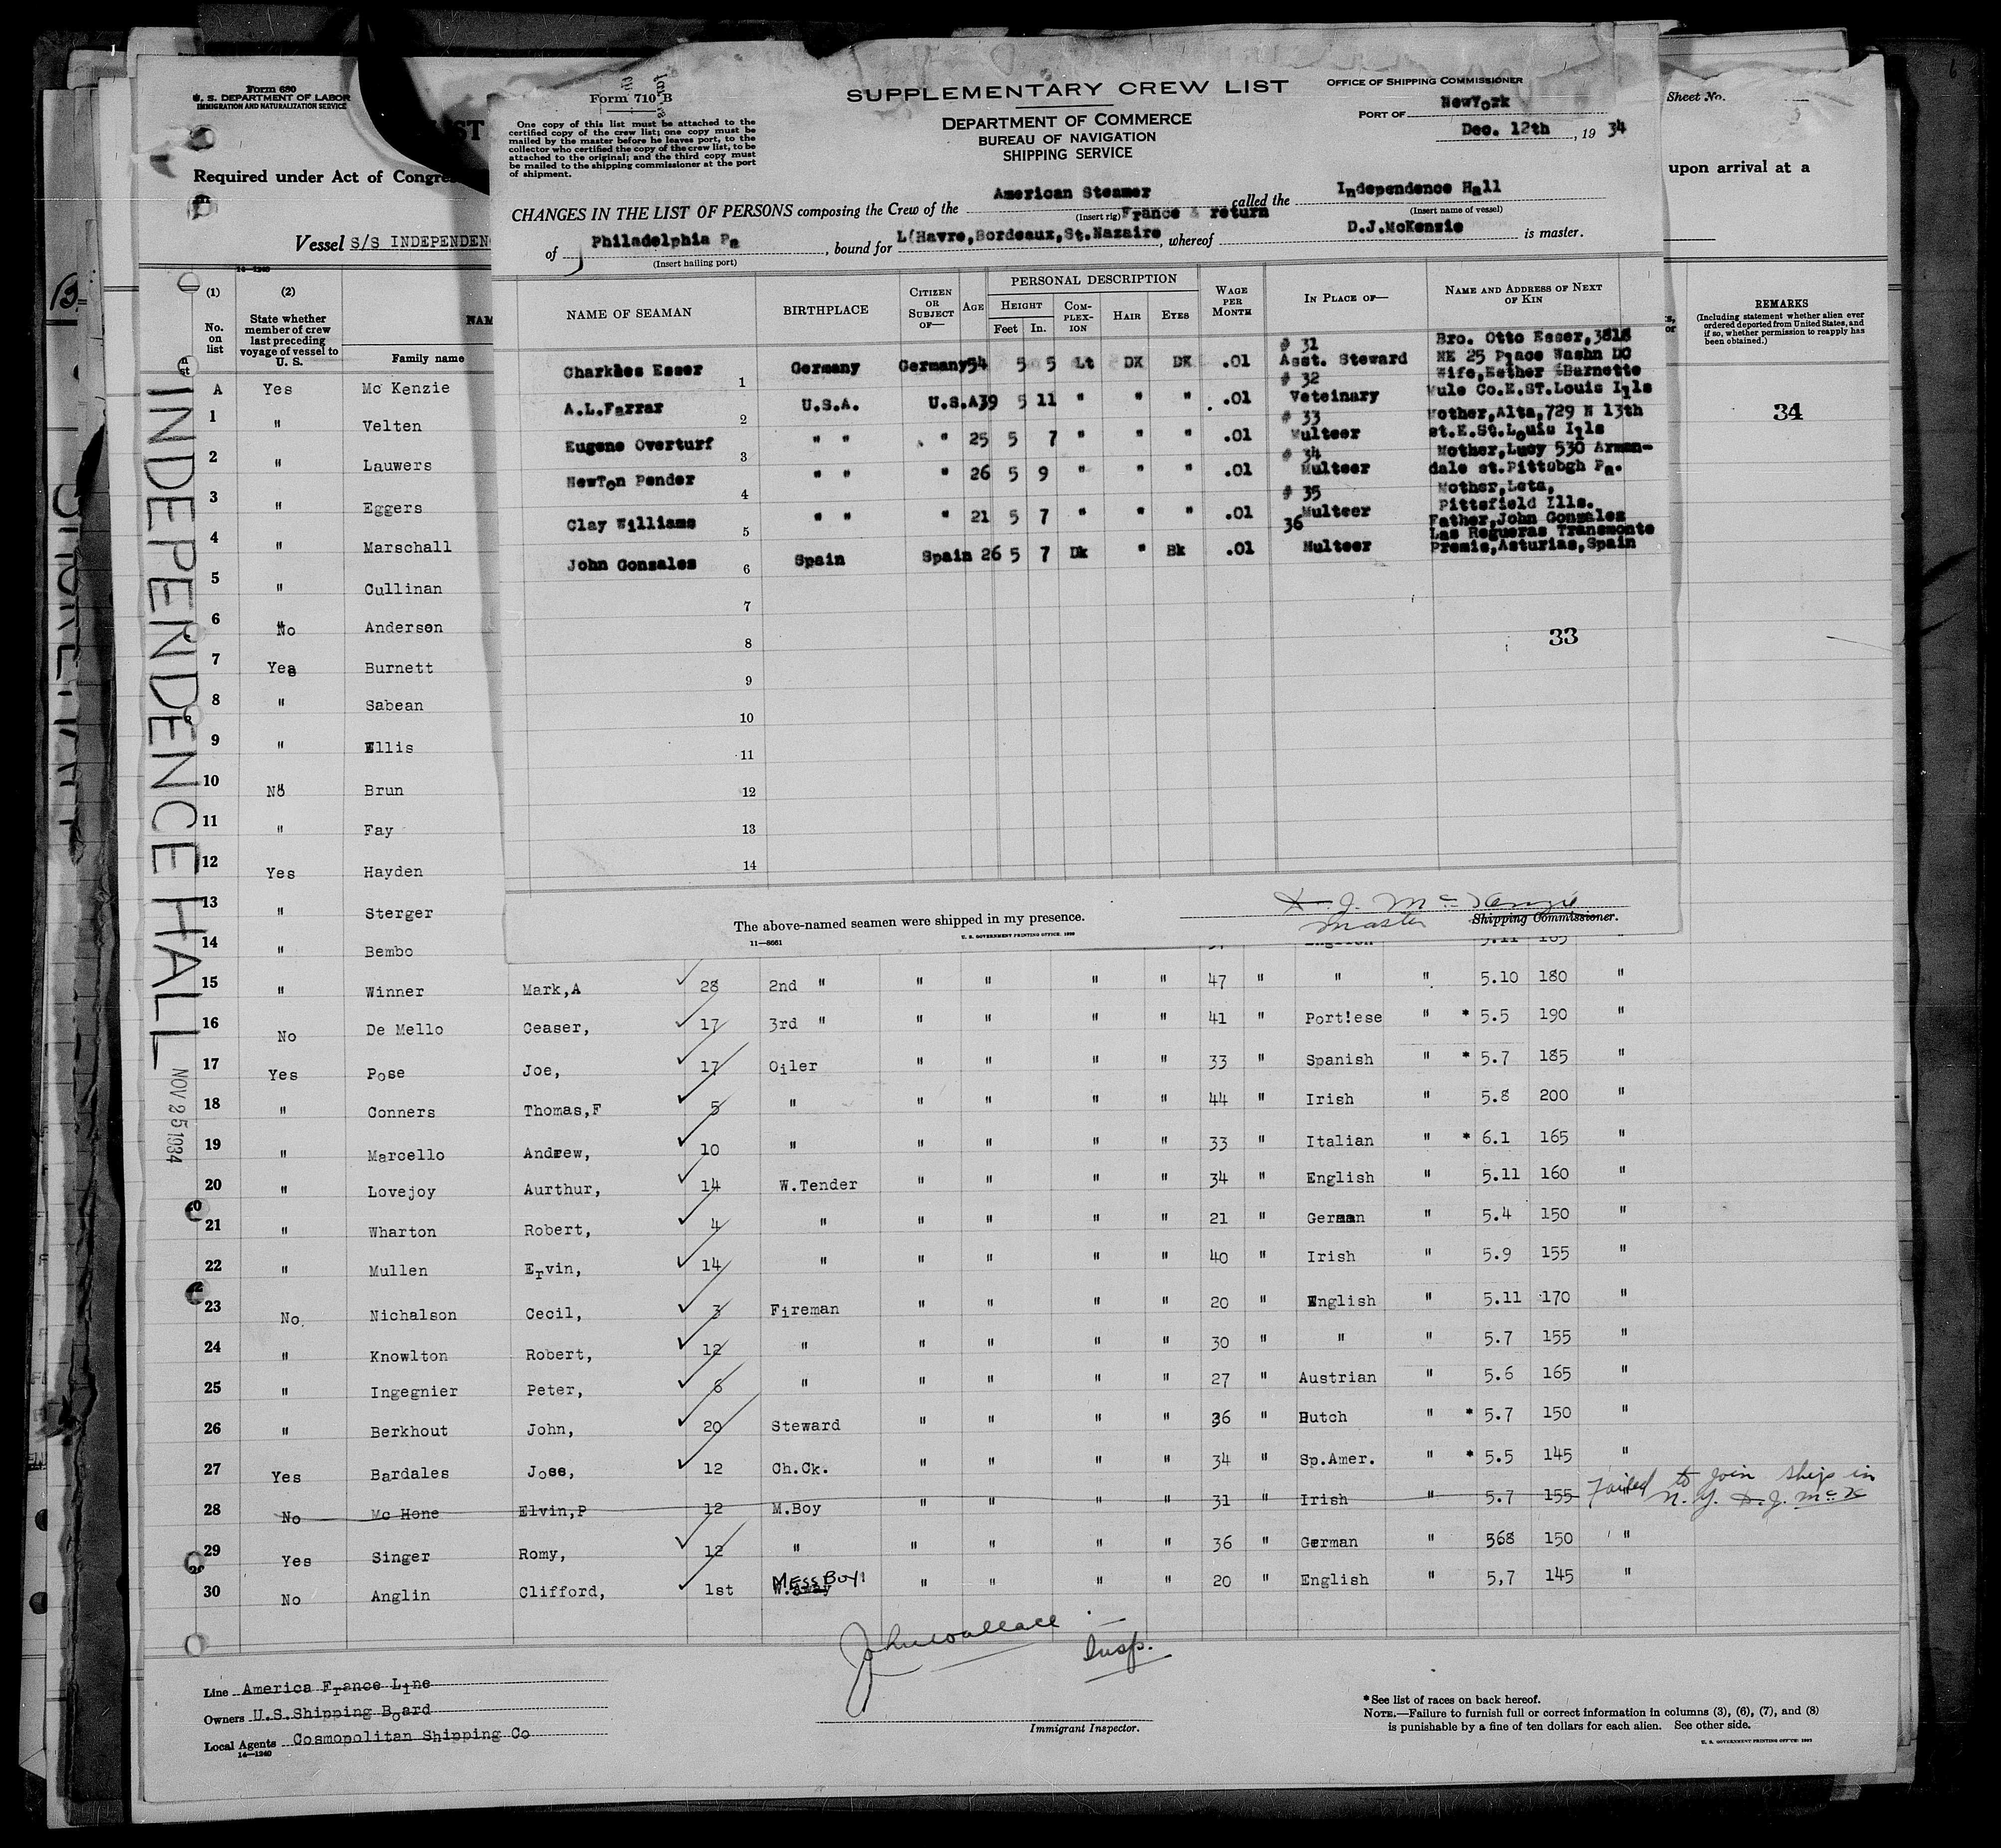 Form 680
U. S. DEPARTMENT OF LABOR
IMMIGRATION AND NATURALIZATION SERVICE
Required under Act of Congre
Vessel S/S INDEPENDEN
Form 710 B
One copy of this list must be attached to the
certified copy of the crew list; one copy must be
mailed by the master before he leaves port, to the
collector who certified the copy of the crew list, to be
attached to the original; and the third copy must
be mailed to the shipping commissioner at the port
of shipment.
SUPPLEMENTARY CREW LIST
DEPARTMENT OF COMMERCE
BUREAU OF NAVIGATION
SHIPPING SERVICE
OFFICE OF SHIPPING COMMISSIONER
PORT OF NewYork
Dec. 12th, 19 34
Sheet No.
upon arrival at a
CHANGES IN THE LIST OF PERSONS composing the Crew of the American Steamer called the Independence Hall
(Insert rig) France & return (Insert name of vessel)
of Philadelphia Pa, bound for L(Havre,Bordeaux,St.Nazaire, whereof D.J.McKenzie is master.
(Insert hailing port)
NAME OF SEAMAN BIRTHPLACE CITIZEN OR SUBJECT OF— AGE PERSONAL DESCRIPTION HEIGHT Feet In. COMPLEXION HAIR EYES WAGE PER MONTH IN PLACE OF— NAME AND ADDRESS OF NEXT OF KIN
Charkles Esser 1 Germany Germany 54 5 5 Lt DK DK .01 # 31 Asst. Steward Bro. Otto Esser,3818 NE 25 Place Washn DC
A.L.Farrar 2 U.S.A. U.S.A 39 5 11 " " " .01 # 32 Veteinary Wife,Esther Barnette Mule Co.E.ST.Louis Ills
Eugene Overturf 3 " " " 25 5 7 " " " .01 # 33 Multeer Mother,Alta,729 N 13th st.E.St.Louis Ills
NewTon Pender 4 " " " 26 5 9 " " " .01 # 34 Multeer Mother,Lucy 530 Arman- dale st.Pittsbgh Pa.
Clay Williams 5 " " " 21 5 7 " " " .01 # 35 Multeer Mother,Leta, Pittsfield Ills.
John Gonzales 6 Spain Spain 26 5 7 Dk " Bk .01 36 Multeer Father,John Gonzales Las Regueras Transmonte Premis,Asturias,Spain
7
8
33
9
10
11
12
13
14
The above-named seamen were shipped in my presence.
D. J. McKenzie
Master Shipping Commissioner.
11—8661
U. S. GOVERNMENT PRINTING OFFICE
14—1240
(1) (2)
No. on list
State whether member of crew last preceding voyage of vessel to U. S.
Family name
REMARKS
(Including statement whether alien ever ordered deported from United States, and if so, whether permission to reapply has been obtained.)
34
A Yes Mc Kenzie
1 " Velten
2 " Lauwers
3 " Eggers
4 " Marschall
5 " Cullinan
6 No Anderson
7 Yes Burnett
8 " Sabean
9 " Ellis
10 No Brun
11 " Fay
12 Yes Hayden
13 " Sterger
14 " Bembo
15 " Winner Mark,A 28 2nd " " " " " 47 " " " 5.10 180 "
16 No De Mello Ceaser, 17 3rd " " " " " 41 " Port!ese " * 5.5 190 "
17 Yes Pose Joe, 17 Oiler " " " " 33 " Spanish " * 5.7 185 "
18 " Conners Thomas,F 5 " " " " " 44 " Irish " 5.8 200 "
19 " Marcello Andrew, 10 " " " " " 33 " Italian " * 6.1 165 "
20 " Lovejoy Aurthur, 14 W.Tender " " " " 34 " English " 5.11 160 "
21 " Wharton Robert, 4 " " " " " 21 " German " 5.4 150 "
22 " Mullen Ervin, 14 " " " " " 40 " Irish " 5.9 155 "
23 No. Nichalson Cecil, 3 Fireman " " " " 20 " English " 5.11 170 "
24 " Knowlton Robert, 12 " " " " " 30 " " " 5.7 155 "
25 " Ingegnier Peter, 6 " " " " " 27 " Austrian " 5.6 165 "
26 " Berkhout John, 20 Steward " " " " 36 " Dutch " * 5.7 150 "
27 Yes Bardales Jose, 12 Ch.Ck. " " " " 34 " Sp.Amer. " * 5.5 145 "
28 No Mc Hone Elvin,P 12 M.Boy " " " " 31 " Irish " 5.7 155 Failed to join ship in N.Y. D.J. McK
29 Yes Singer Romy, 12 " " " " " 36 " German " 568 150 "
30 No Anglin Clifford, 1st MESSBOY " " " " 20 " English " 5,7 145 "
INDEPENDENCE HALL
NOV 25 1934
John Wallace Insp.
Immigrant Inspector.
Line America France Line
Owners U.S.Shipping Board
Local Agents Cosmopolitan Shipping Co
14—1240
*See list of races on back hereof.
NOTE.—Failure to furnish full or correct information in columns (3), (6), (7), and (8)
is punishable by a fine of ten dollars for each alien. See other side.
U. S. GOVERNMENT PRINTING OFFICE